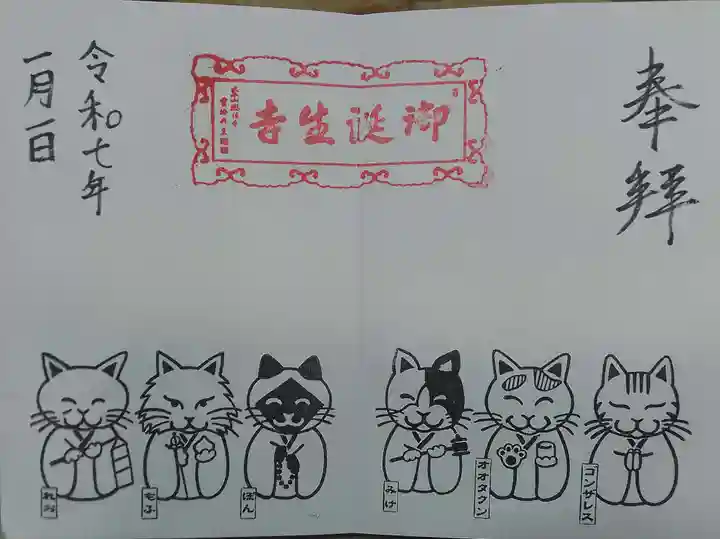 奉拝
御誕生寺
令和七年
一月一日
コンザレス
オオタクン
みけ
ぽん
もふ